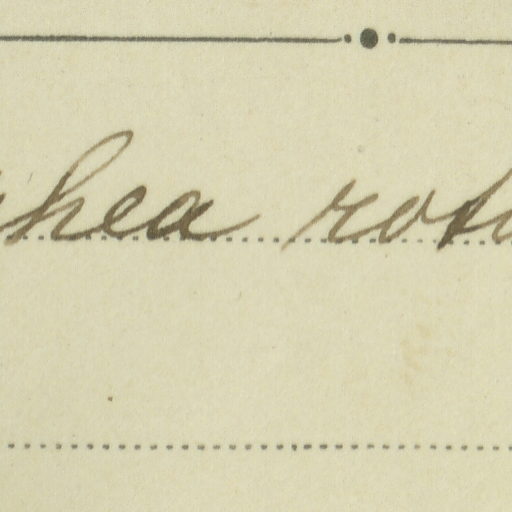 hea rot